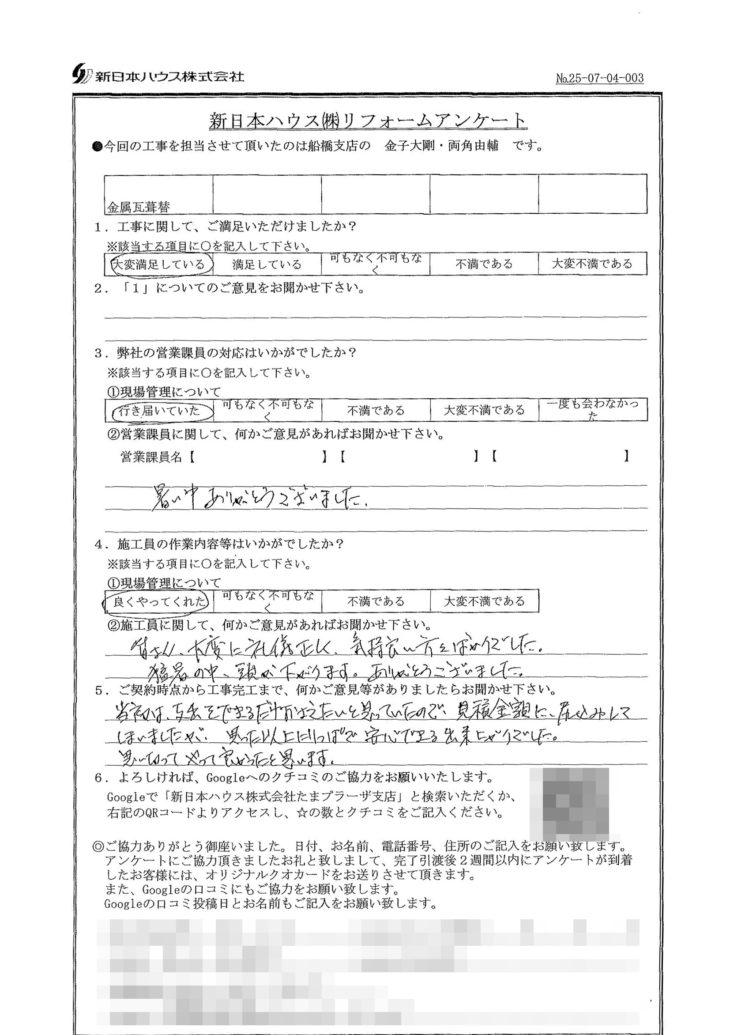 新日本ハウス株式会社
№25-07-04-003
新日本ハウス㈱リフォームアンケート
●今回の工事を担当させて頂いたのは船橋支店の 金子大剛・両角由輔 です。
金属瓦葺替
１．工事に関して、ご満足いただけましたか？
※該当する項目に○を記入して下さい。
大変満足している 満足している 可もなく不可もなく 不満である 大変不満である
２．「１」についてのご意見をお聞かせ下さい。
３．弊社の営業課員の対応はいかがでしたか？
※該当する項目に○を記入して下さい。
①現場管理について
行き届いていた 可もなく不可もなく 不満である 大変不満である 一度も会わなかった
②営業課員に関して、何かご意見があればお聞かせ下さい。
営業課員名【 】【 】【 】
暑い中ありがとうございました。
４．施工員の作業内容等はいかがでしたか？
※該当する項目に○を記入して下さい。
①現場管理について
良くやってくれた 可もなく不可もなく 不満である 大変不満である
②施工員に関して、何かご意見があればお聞かせ下さい。
皆さん、大変に礼儀正しく、気持良い方々ばかりでした。
猛暑の中、頭が下がります。ありがとうございました。
５．ご契約時点から工事完工まで、何かご意見等がありましたらお聞かせ下さい。
当初は、支出をできるだけおさえたいと思っていたので、見積金額に、尻込みして
しまいましたが、思った以上にりっぱで安心できる出来上がりでした。
思い切ってやって良かったと思います。
６．よろしければ、Googleへのクチコミのご協力をお願いいたします。
Googleで「新日本ハウス株式会社たまプラーザ支店」と検索いただくか、
右記のQRコードよりアクセスし、☆の数とクチコミをご記入ください。
◎ご協力ありがとう御座いました。日付、お名前、電話番号、住所のご記入をお願い致します。
アンケートにご協力頂きましたお礼と致しまして、完了引渡後２週間以内にアンケートが到着
したお客様には、オリジナルクオカードをお送りさせて頂きます。
また、Googleの口コミにもご協力をお願い致します。
Googleの口コミ投稿日とお名前もご記入をお願い致します。